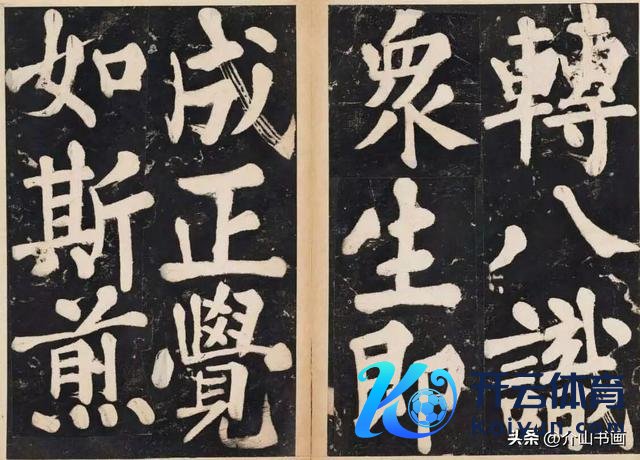 轉八識
眾生即
成正覺
如斯煎
开云体育
Kaiyun.com
头条 @介山书画